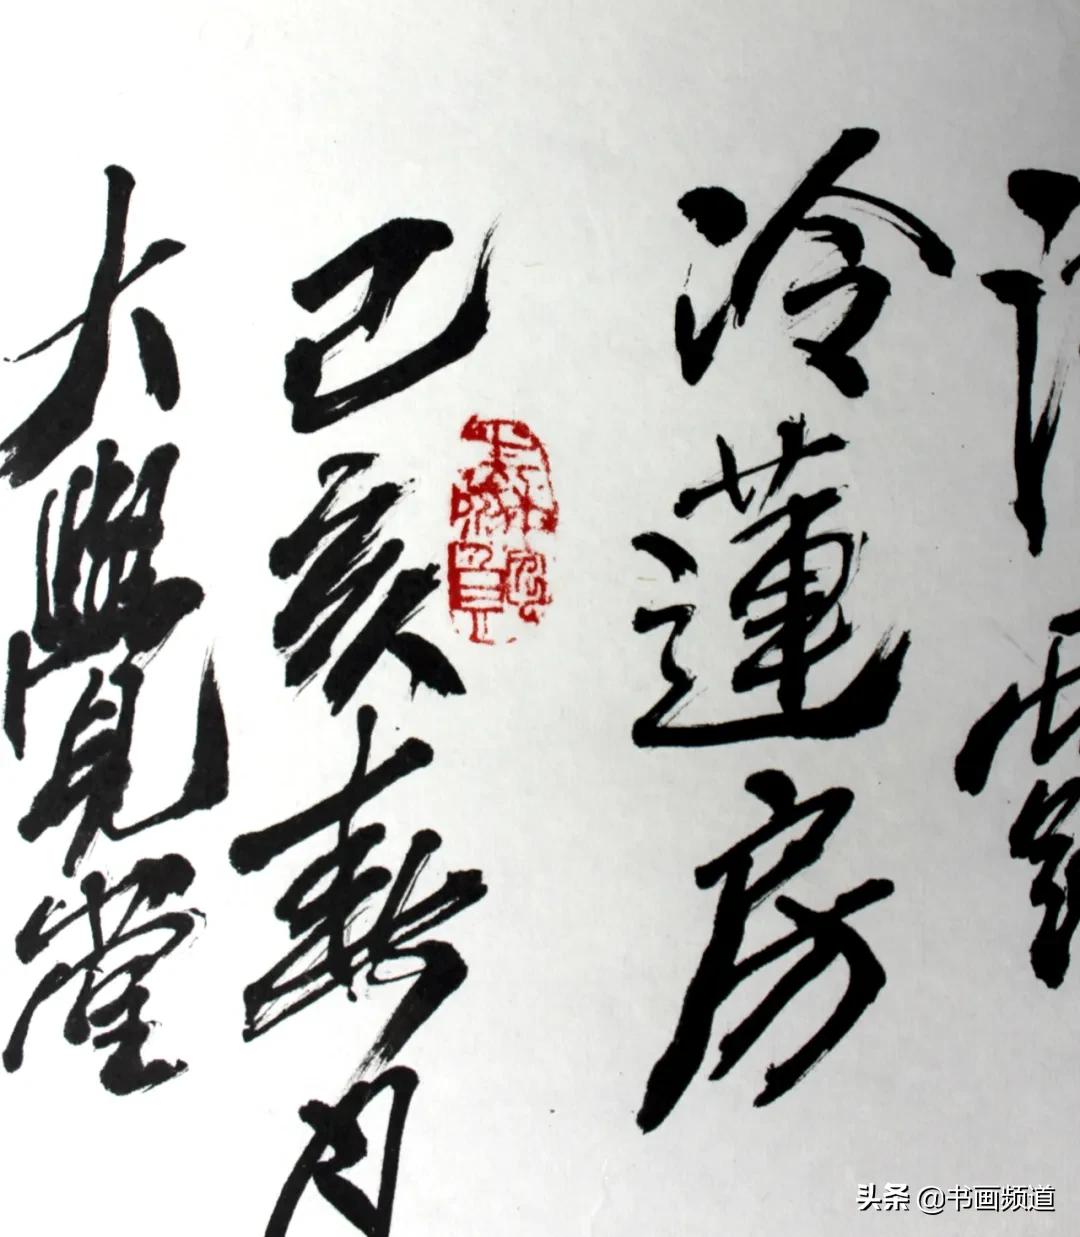 露
冷蓮房
己亥月
大覺堂
头条 @书画频道